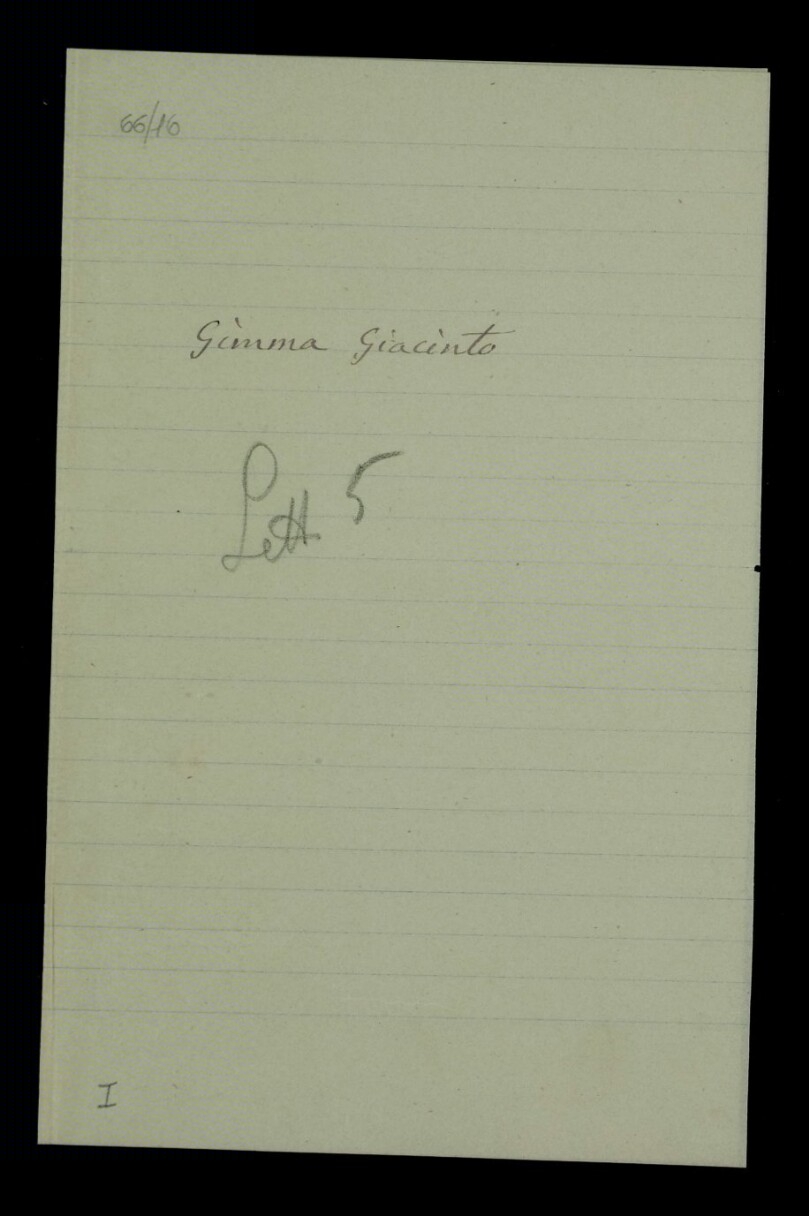 66/16
Gimma Giacinto
Lett 5
I